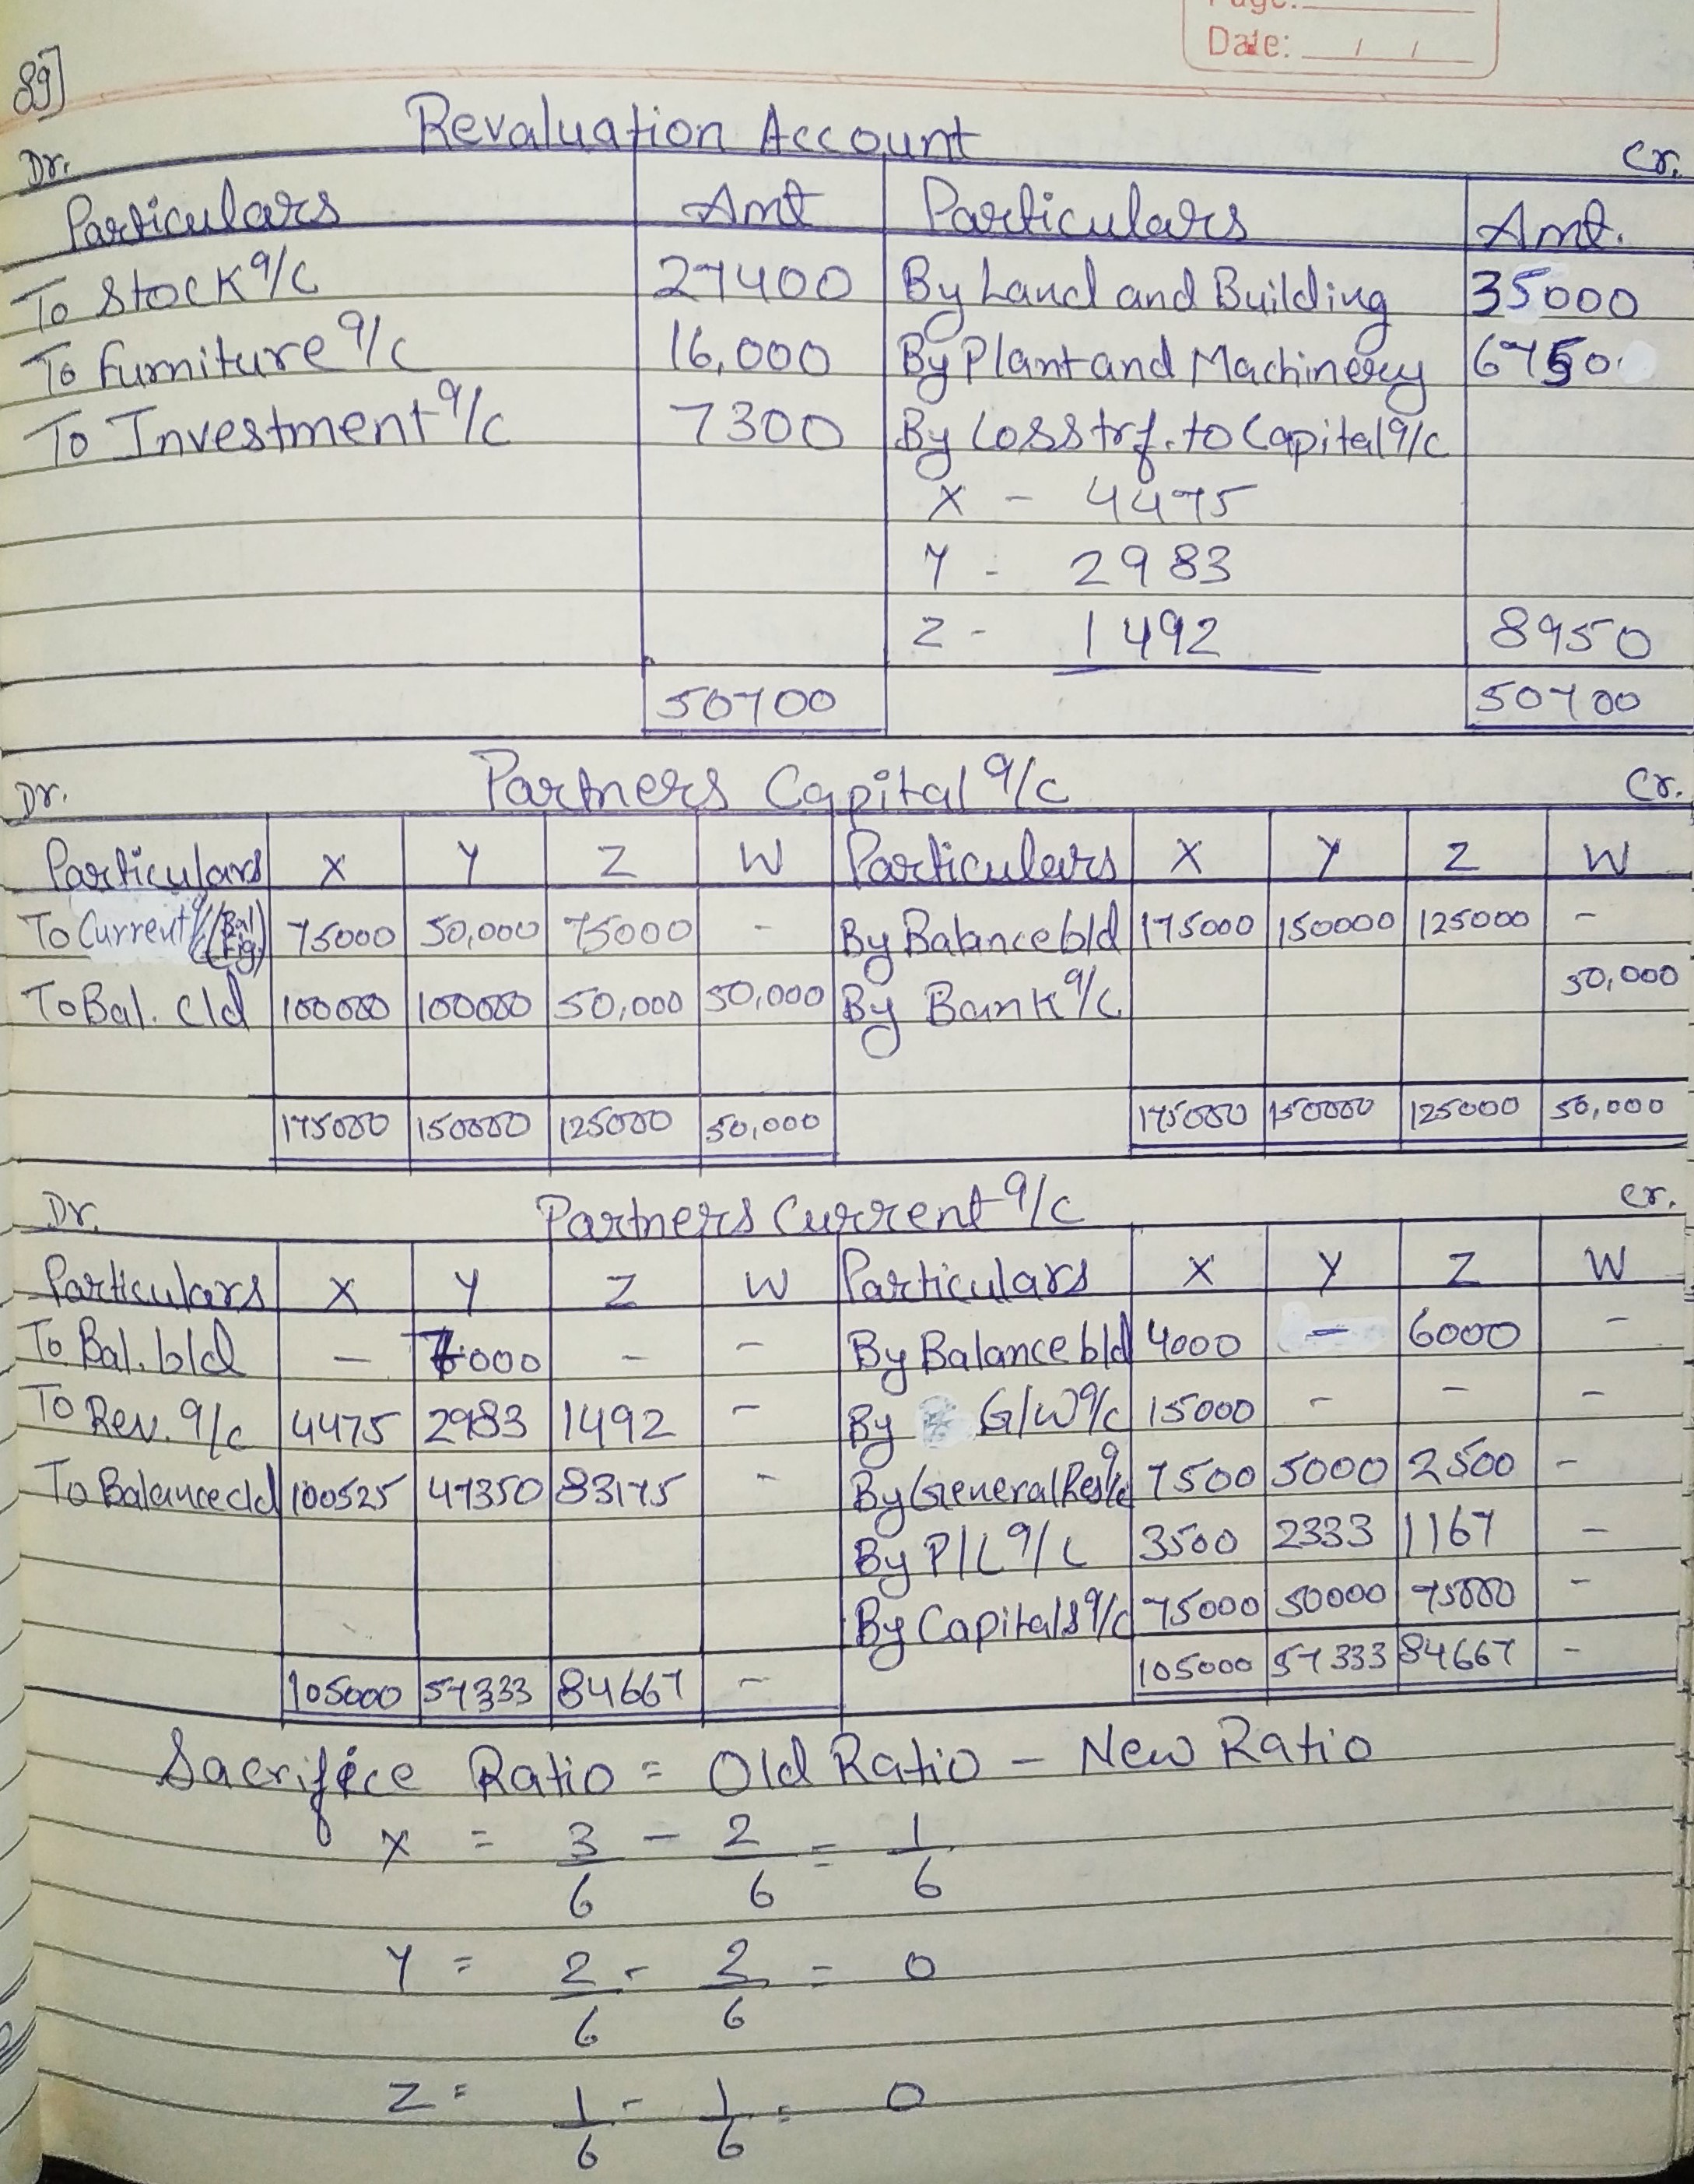 Page:
Date: / /
89]
Revaluation Account
Dr. Cr.
Particulars Amt Particulars Amt.
To Stock a/c 27400 By Land and Building 35000
To Furniture a/c 16,000 By Plant and Machinery 6750
To Investment a/c 7300 By Loss trf. to Capital a/c
X - 4475
Y - 2983
Z - 1492 8950
50700 50700
Partners Capital a/c
Dr. Cr.
Particulars X Y Z W Particulars X Y Z W
To Current a/c (Bal Fig.) 75000 50,000 75000 - By Balance b/d 175000 150000 125000 -
To Bal. c/d 100000 100000 50,000 50,000 By Bank a/c 50,000
175000 150000 125000 50,000 175000 150000 125000 50,000
Partners Current a/c
Dr. Cr.
Particulars X Y Z W Particulars X Y Z W
To Bal. b/d - 7000 - - By Balance b/d 4000 - 6000 -
To Rev. a/c 4475 2983 1492 - By G/W a/c 15000 - - -
To Balance c/d 100525 47350 83175 - By General Res a/c 7500 5000 2500 -
By P/L a/c 3500 2333 1167 -
By Capitals a/c 75000 50000 75000 -
105000 57333 84667 - 105000 57333 84667 -
Sacrifice Ratio = Old Ratio - New Ratio
X = 3/6 - 2/6 = 1/6
Y = 2/6 - 2/6 = 0
Z = 1/6 - 1/6 = 0